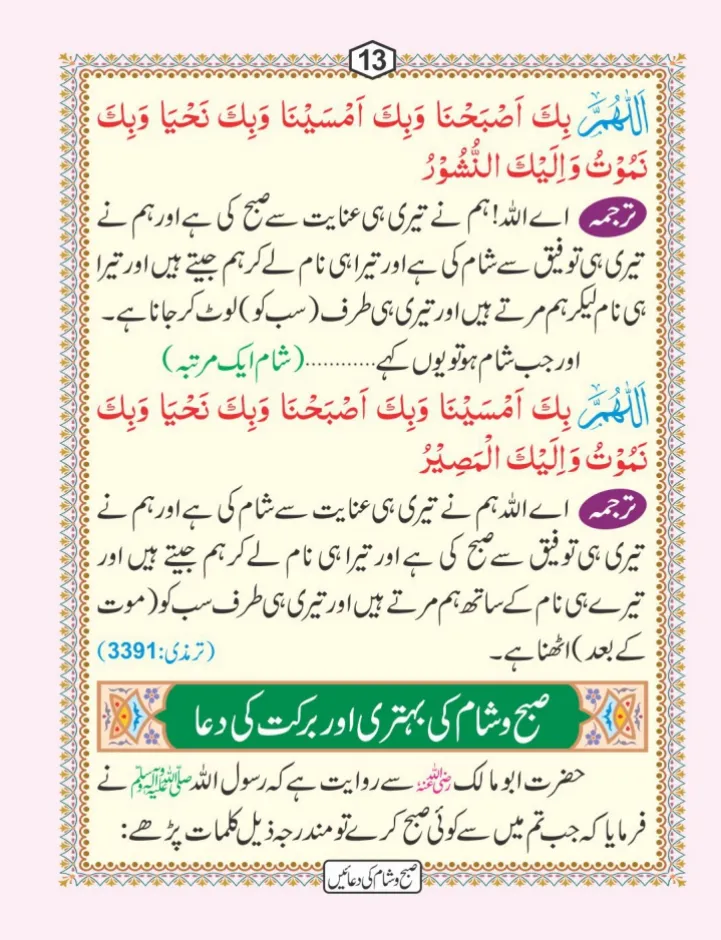 13
اَللّٰهُمَّ بِكَ اَصْبَحْنَا وَبِكَ اَمْسَيْنَا وَبِكَ نَحْيَا وَبِكَ
نَمُوْتُ وَاِلَيْكَ النُّشُوْرُ
ترجمہ اے اللہ! ہم نے تیری ہی عنایت سے صبح کی ہے اور ہم نے
تیری ہی توفیق سے شام کی ہے اور تیرا ہی نام لے کر ہم جیتے ہیں اور تیرا
ہی نام لیکر ہم مرتے ہیں اور تیری ہی طرف (سب کو) لوٹ کر جانا ہے۔
اور جب شام ہو تو یوں کہے............(شام ایک مرتبہ)
اَللّٰهُمَّ بِكَ اَمْسَيْنَا وَبِكَ اَصْبَحْنَا وَبِكَ نَحْيَا وَبِكَ
نَمُوْتُ وَاِلَيْكَ الْمَصِيْرُ
ترجمہ اے اللہ ہم نے تیری ہی عنایت سے شام کی ہے اور ہم نے
تیری ہی توفیق سے صبح کی ہے اور تیرا ہی نام لے کر ہم جیتے ہیں اور
تیرے ہی نام کے ساتھ ہم مرتے ہیں اور تیری ہی طرف سب کو (موت
کے بعد) اٹھنا ہے۔ (ترمذی:3391)
صبح و شام کی بہتری اور برکت کی دعا
حضرت ابو مالک رضی اللہ عنہ سے روایت ہے کہ رسول اللہ صلی اللہ علیہ وسلم نے
فرمایا کہ جب تم میں سے کوئی صبح کرے تو مندرجہ ذیل کلمات پڑھے:
صبح و شام کی دعائیں